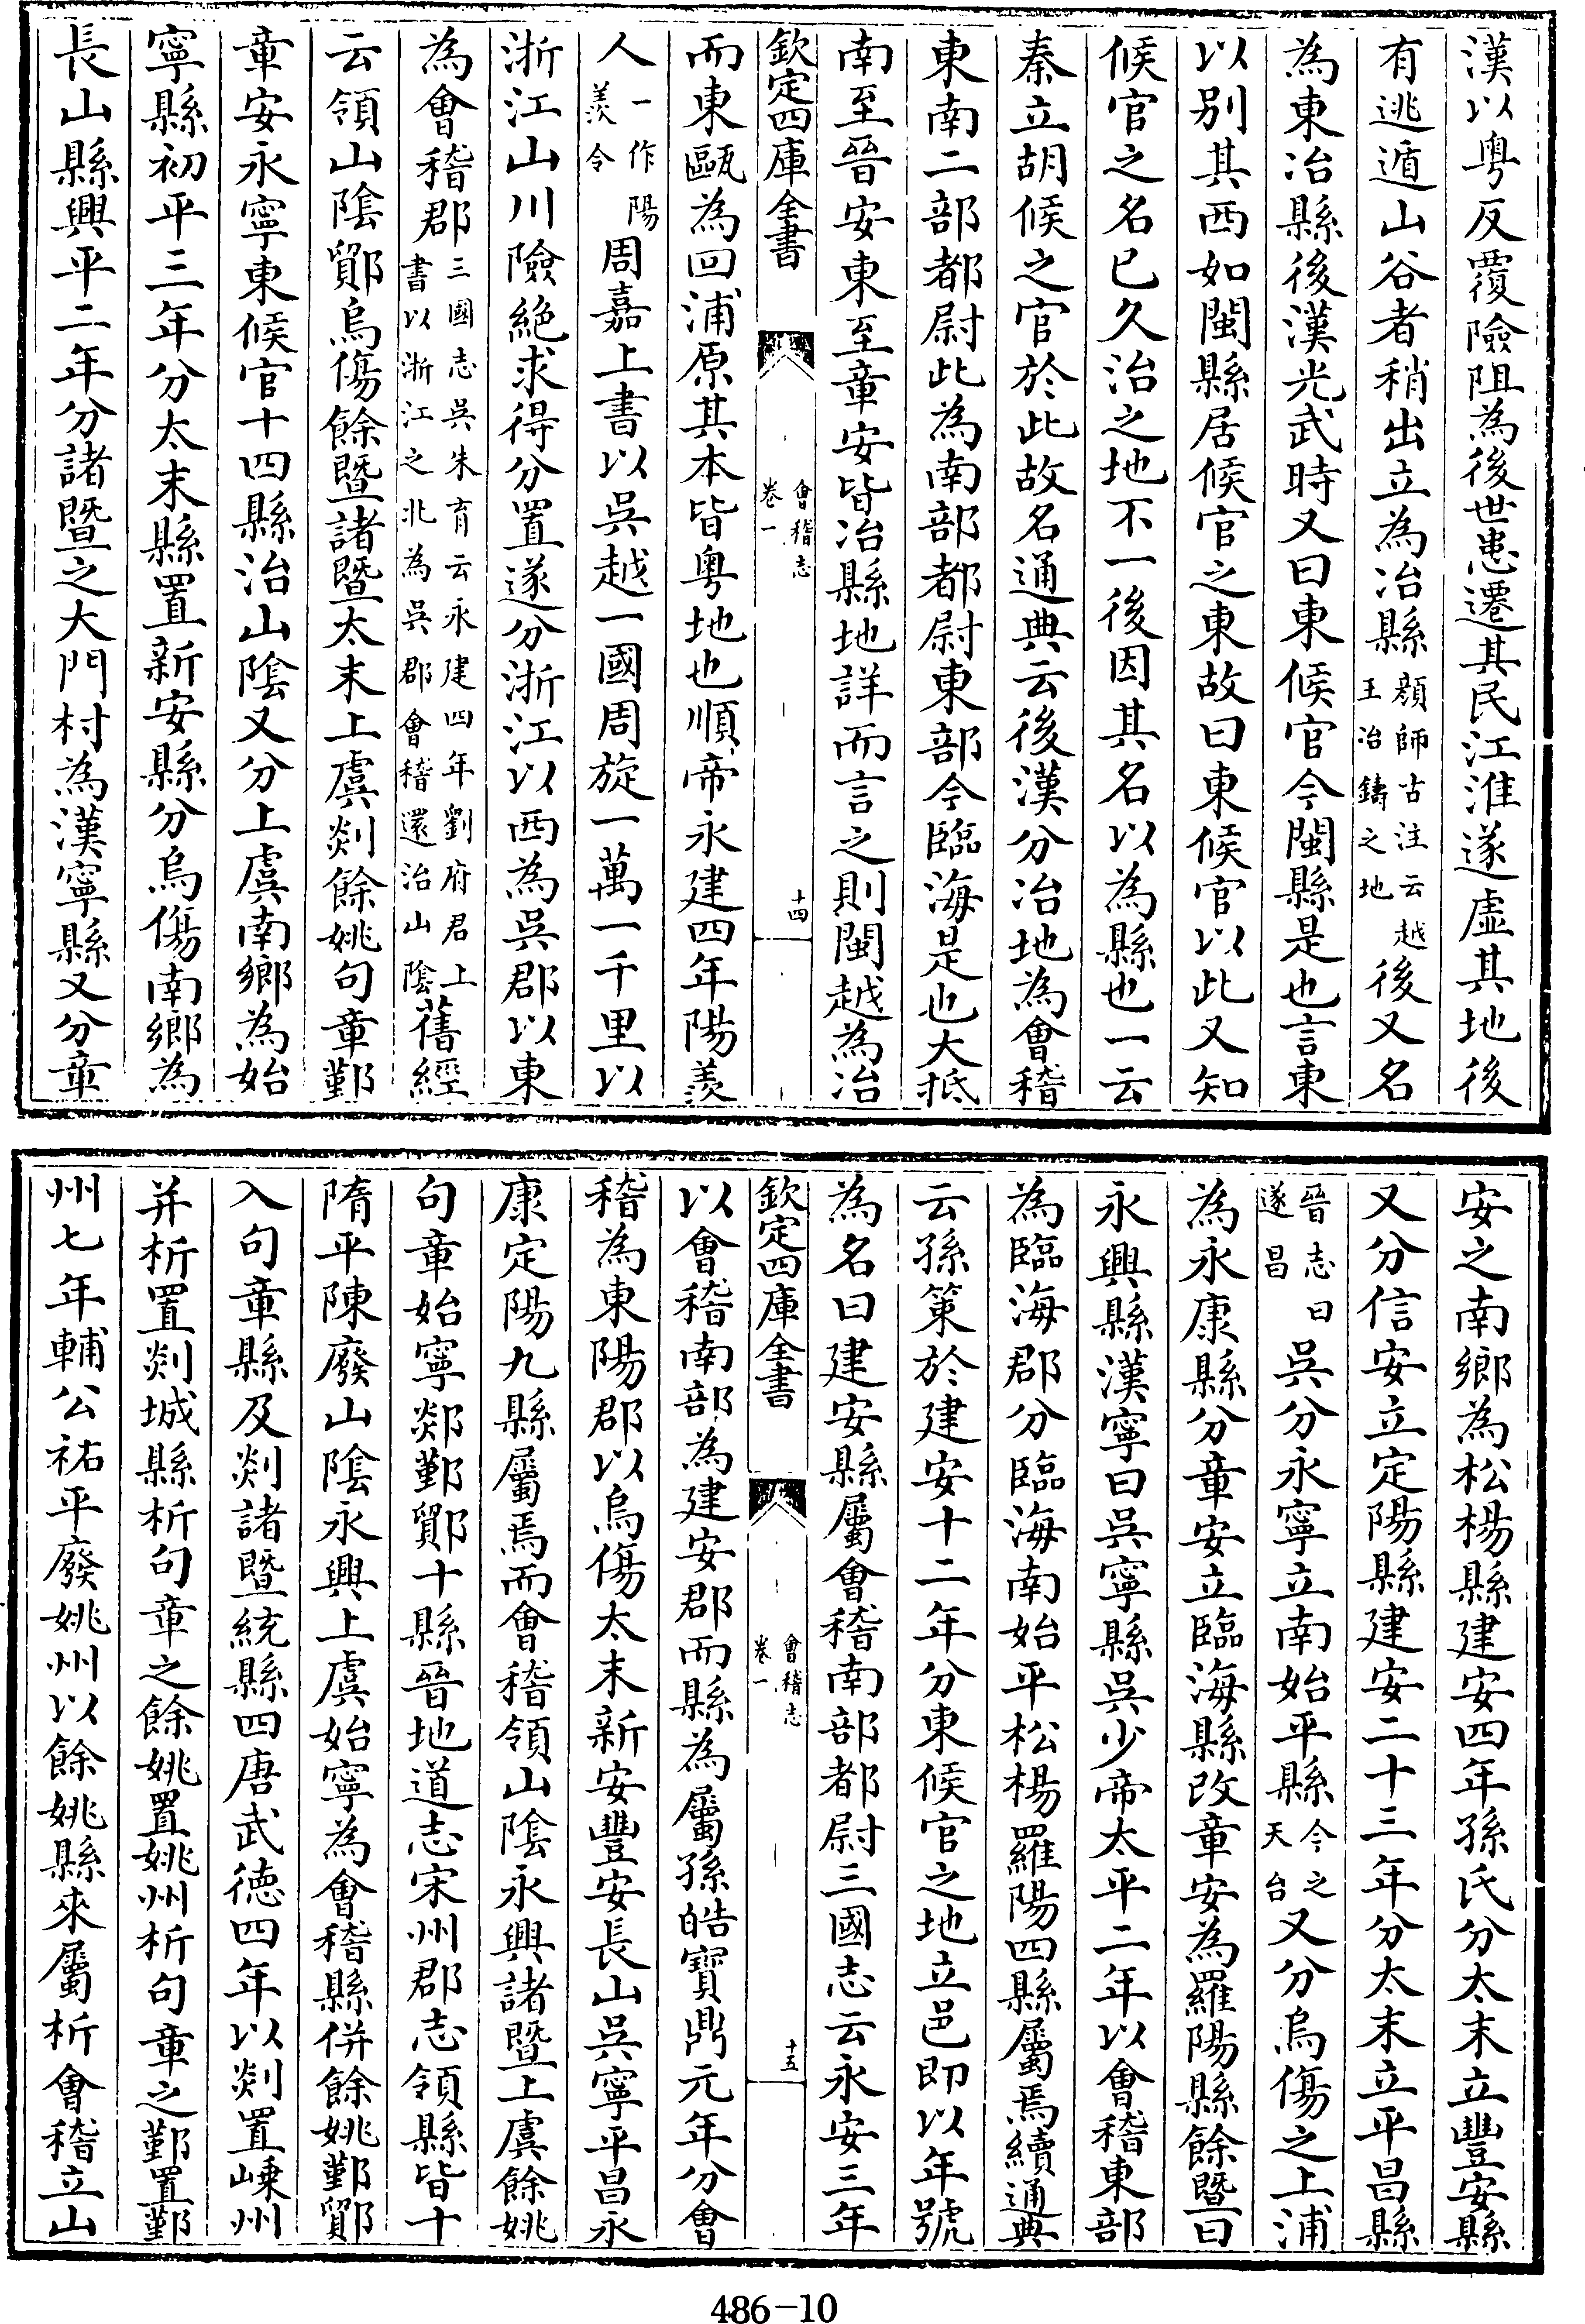 漢以粤反覆險阻為後世患遷其民江淮遂虛其地後
有逃遁山谷者稍出立為冶縣顔師古注云越王冶鑄之地後又名
為東冶縣後漢光武時又曰東候官今閩縣是也言東
以别其西如閩縣居候官之東故曰東候官以此又知
候官之名已久冶之地不一後因其名以為縣也一云
秦立胡候之官於此故名通典云後漢分冶地為會稽
東南二部都尉此為南部都尉東部今臨海是也大抵
南至晉安東至章安皆冶縣地詳而言之則閩越為冶
欽定四庫全書
會稽志
卷一
十四
而東甌為回浦原其本皆粤地也順帝永建四年陽羨
人一作陽羨令周嘉上書以吳越一國周旋一萬一千里以
浙江山川險絶求得分置遂分浙江以西為吳郡以東
為會稽郡三國志吳朱育云永建四年劉府君上書以浙江之北為吳郡會稽還治山隂舊經
云領山隂鄮烏傷餘曁諸曁太末上虞剡餘姚句章鄞
章安永寧東候官十四縣治山隂又分上虞南鄉為始
寧縣初平三年分太末縣置新安縣分烏傷南鄉為
長山縣興平二年分諸曁之大門村為漢寧縣又分章
安之南鄉為松楊縣建安四年孫氏分太末立豐安縣
又分信安立定陽縣建安二十三年分太末立平昌縣
晉志曰遂昌吳分永寧立南始平縣今之天台又分烏傷之上浦
為永康縣分章安立臨海縣改章安為羅陽縣餘曁曰
永興縣漢寧曰吳寧縣吳少帝太平二年以會稽東部
為臨海郡分臨海南始平松楊羅陽四縣屬焉續通典
云孫策於建安十二年分東候官之地立邑即以年號
為名曰建安縣屬會稽南部都尉三國志云永安三年
欽定四庫全書
會稽志
卷一
十五
以會稽南部為建安郡而縣為屬孫皓寶鼎元年分會
稽為東陽郡以烏傷太末新安豐安長山吳寧平昌永
康定陽九縣屬焉而會稽領山隂永興諸曁上虞餘姚
句章始寧郯鄞鄮十縣晉地道志宋州郡志領縣皆十
隋平陳廢山隂永興上虞始寧為會稽縣併餘姚鄞鄮
入句章縣及剡諸曁統縣四唐武徳四年以剡置嵊州
并析置剡城縣析句章之餘姚置姚州析句章之鄞置鄞
州七年輔公祏平廢姚州以餘姚縣來屬析會稽立山
486-10